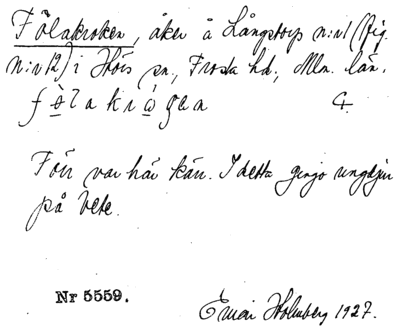 Fölakroken, åker å Långstorp n:r 1 (fig.
N:r 12) i Hörs sn, Frosta hd, Mlm. län.
fö̀lakrọ́gen 4.
Förr var här kärr. I detta gingo ungdjur
på bete.
Nr 5559.
Einar Holmberg 1927.